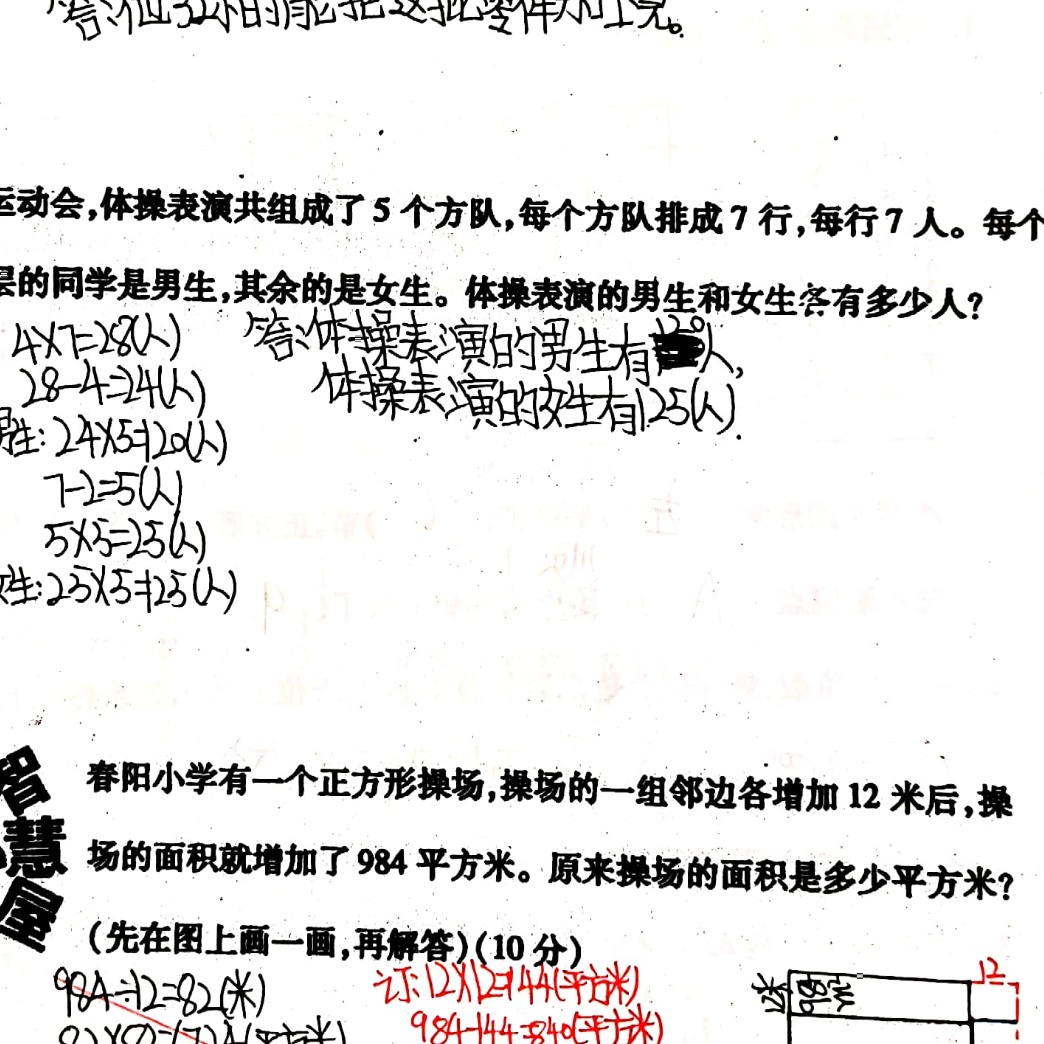 答:他32小时能把这批零件加工完。
运动会,体操表演共组成了5个方队,每个方队排成7行,每行7人。每个
层的同学是男生,其余的是女生。体操表演的男生和女生各有多少人?
4×7=28(人)
28-4=24(人)
男生:24×5=120(人)
7-2=5(人)
5×5=25(人)
女生:25×5=125(人)
答:体操表演的男生有120人,
体操表演的女生有125(人).
智慧屋
春阳小学有一个正方形操场,操场的一组邻边各增加12米后,操
场的面积就增加了984平方米。原来操场的面积是多少平方米?
(先在图上画一画,再解答)(10分)
984÷12=82(米)
82×82=6724(平方米)
订:12×12=144(平方米)
984-144=840(平方米)
12米
984m²
12